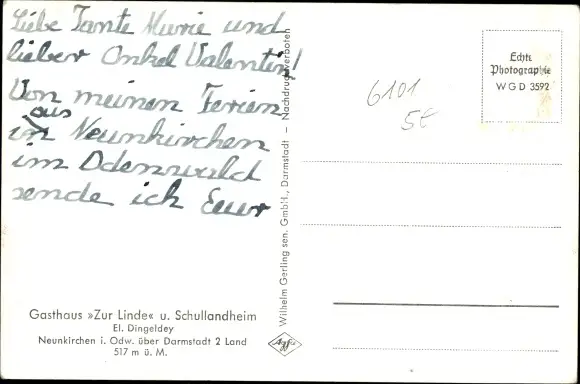 Liebe Tante Marie und
lieber Onkel Valentin!
Von meinen Ferien
aus
in Neunkirchen
im Odenwald
sende ich Euer
Gasthaus »Zur Linde« u. Schullandheim
El. Dingeldey
Neunkirchen i. Odw. über Darmstadt 2 Land
517 m ü. M.
Wilhelm Gerling sen. GmbH., Darmstadt — Nachdruck verboten
Agfa
6101
5€
Echte
Photographie
WGD 3592